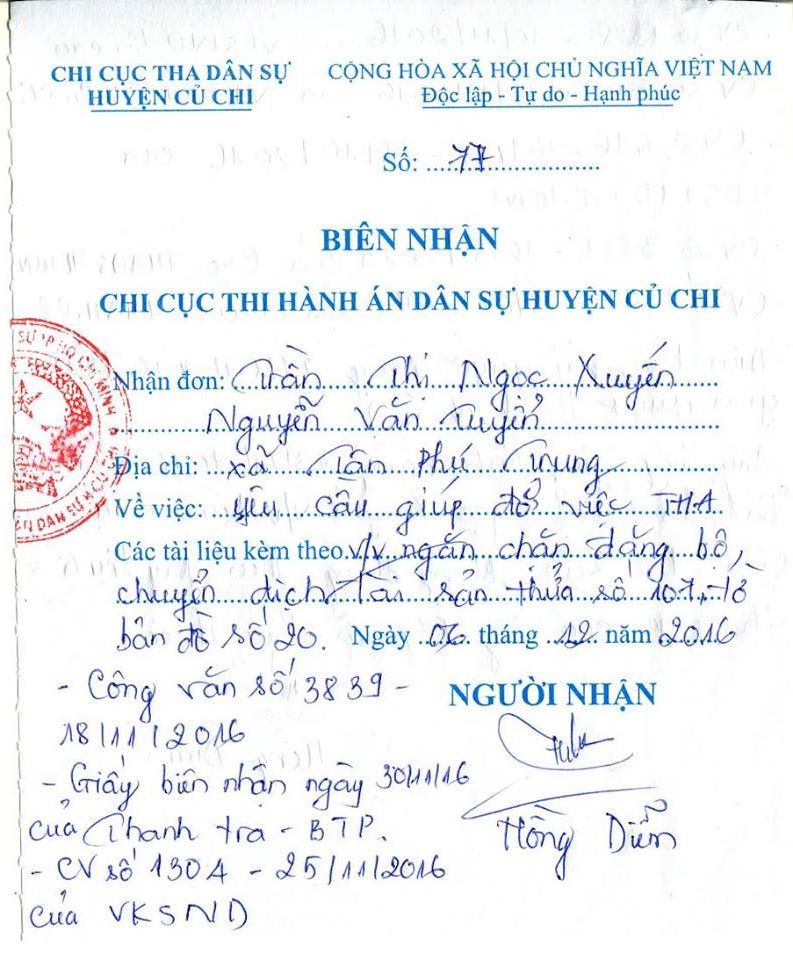 CHI CỤC THA DÂN SỰ
HUYỆN CỦ CHI
CỘNG HÒA XÃ HỘI CHỦ NGHĨA VIỆT NAM
Độc lập - Tự do - Hạnh phúc
Số: 77
BIÊN NHẬN
CHI CỤC THI HÀNH ÁN DÂN SỰ HUYỆN CỦ CHI
Nhận đơn: Trần Thị Ngọc Xuyến
Nguyễn Văn Tuyển
Địa chỉ: xã Tân Phú Trung
Về việc: yêu cầu giúp đỡ việc THA
Các tài liệu kèm theo v/v ngăn chăn đăng bộ,
chuyển dịch tài sản thửa số 107, tờ
bản đồ số 20. Ngày 06 tháng 12 năm 2016
- Công văn số 3839 -
18/11/2016
- Giấy biên nhận ngày 30/11/16
của Thanh tra - BTP.
- CV số 1304 - 25/11/2016
của VKSND
NGƯỜI NHẬN
Hồng Diễm